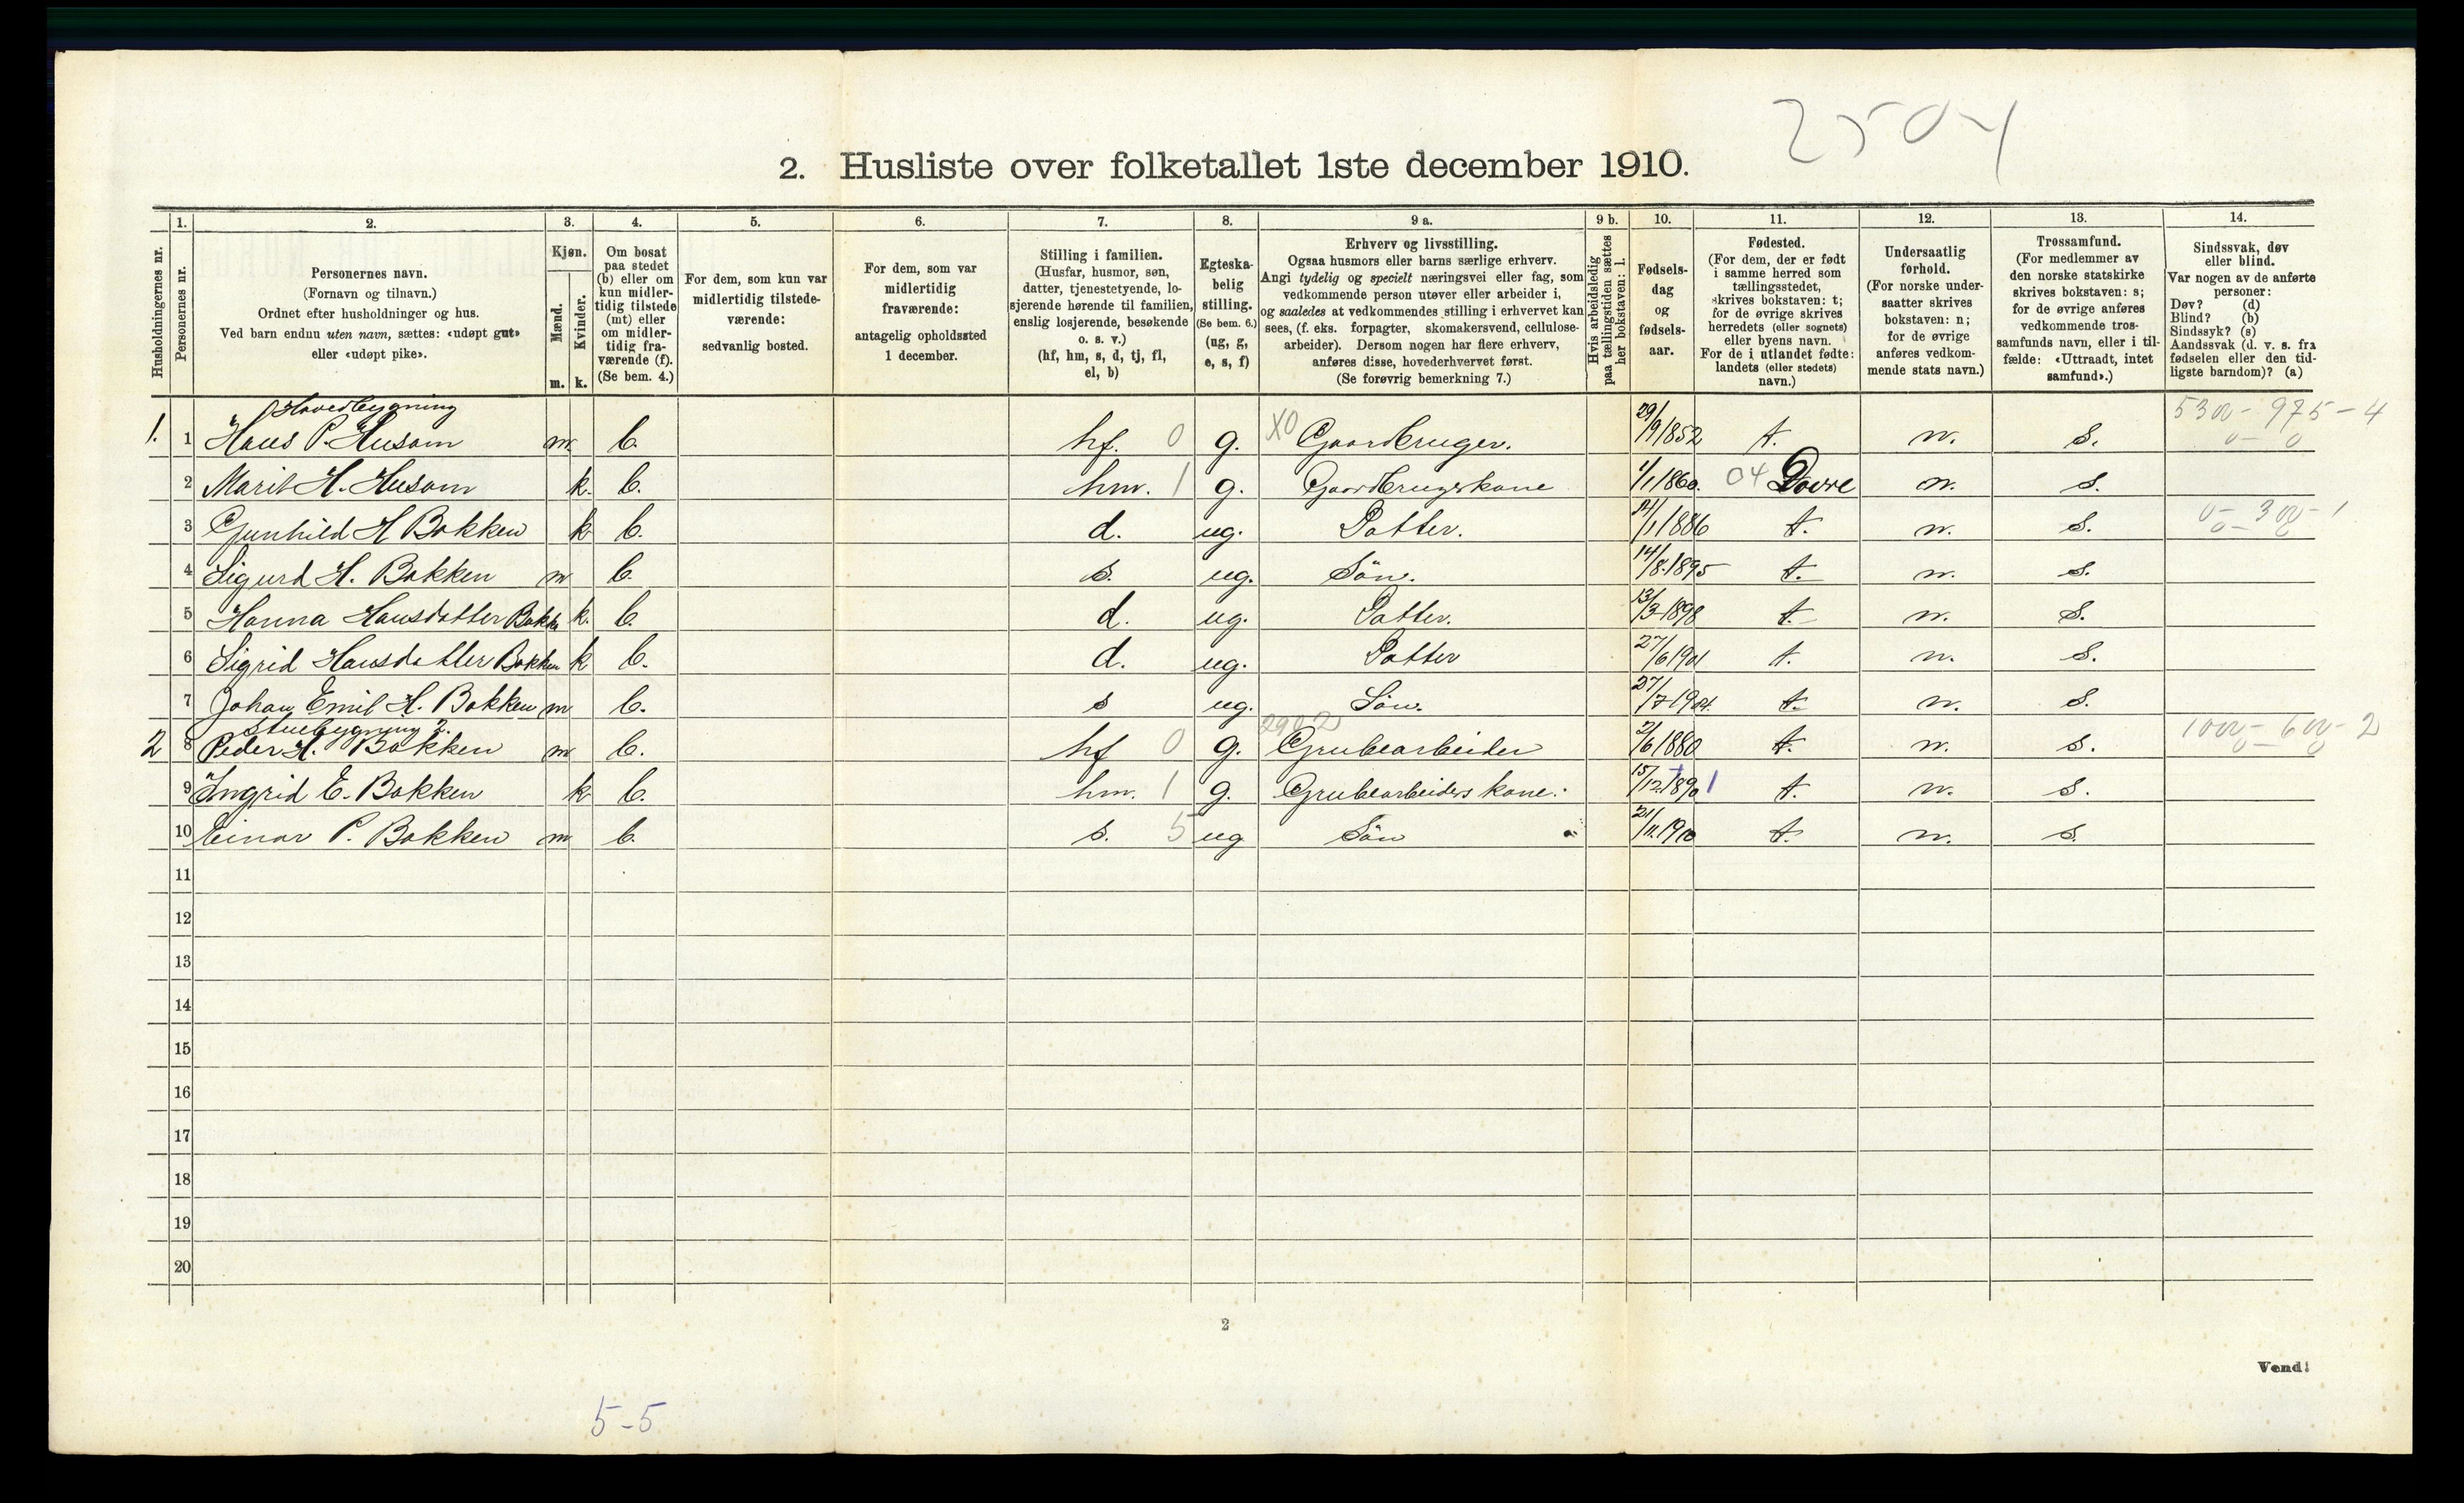 2504
2. Husliste over folketallet 1ste december 1910.
Husholdningernes nr.
1.
Personernes nr.
2.
Personernes navn.
(Fornavn og tilnavn.)
Ordnet efter husholdninger og hus.
Ved barn endnu uten navn, sættes: «udøpt gut»
eller «udøpt pike».
3.
Kjøn.
Mænd.
Kvinder.
m. k.
4.
Om bosat
paa stedet
(b) eller om
kun midler-
tidig tilstede
(mt) eller
om midler-
tidig fra-
værende (f).
(Se bem. 4.)
5.
For dem, som kun var
midlertidig tilstede-
værende:
sedvanlig bosted.
6.
For dem, som var
midlertidig
fraværende:
antagelig opholdssted
1 december.
7.
Stilling i familien.
(Husfar, husmor, søn,
datter, tjenestetyende, lo-
sjerende hørende til familien,
enslig losjerende, besøkende
o. s. v.)
(hf, hm, s, d, tj, fl,
el, b)
8.
Egteska-
belig
stilling.
(Se bem. 6.)
(ug, g,
e, s, f)
9 a.
Erhverv og livsstilling.
Ogsaa husmors eller barns særlige erhverv.
Angi tydelig og specielt næringsvei eller fag, som
vedkommende person utøver eller arbeider i,
og saaledes at vedkommendes stilling i erhvervet kan
sees, (f. eks. forpagter, skomakersvend, cellulose-
arbeider). Dersom nogen har flere erhverv,
anføres disse, hovederhvervet først.
(Se forøvrig bemerkning 7.)
9 b.
Hvis arbeidsledig
paa tællingstiden sættes
her bokstaven: l.
10.
Fødsels-
dag
og
fødsels-
aar.
11.
Fødested.
(For dem, der er født
i samme herred som
tællingsstedet,
skrives bokstaven: t;
for de øvrige skrives
herredets (eller sognets)
eller byens navn.
For de i utlandet fødte:
landets (eller stedets)
navn.)
12.
Undersaatlig
forhold.
(For norske under-
saatter skrives
bokstaven: n;
for de øvrige
anføres vedkom-
mende stats navn.)
13.
Trossamfund.
(For medlemmer av
den norske statskirke
skrives bokstaven: s;
for de øvrige anføres
vedkommende tros-
samfunds navn, eller i til-
fælde: «Uttraadt, intet
samfund».)
14.
Sindssvak, døv
eller blind.
Var nogen av de anførte
personer:
Døv? (d)
Blind? (b)
Sindssyk? (s)
Aandssvak (d. v. s. fra
fødselen eller den tid-
ligste barndom)? (a)
Hovedbygning 5300 - 975 - 4
1. 1 Hans P. Husom m. b. hf. 0 g. X0 Gaardbruger. 29/9 1852 t. n. s. 0 - 0
2 Marit H. Husom k. b. hm. 1 g. Gaardbrugerkone 1/1 1860. 04 Dovre n. s.
3 Gunhild H Bakken k b. d. ug. Datter. 1886 t. n. s. 0 - 300 - 1
4 Sigurd H. Bakken m b. s. ug. Sön. 14/8. 1895 t. n. s.
5 Hanna Hansdatter Bakken k. b. d. ug. Datter. 13/3 1898 t. n. s.
6 Sigrid Hansdatter Bakken k b. d. ug. Datter 27/6 1901 t. n. s.
7 Johan Emil H. Bakken m b. s ug. Sön. 27/7 1904. t. n. s.
Stuebygning 2. 2902
2 8 Peder H. Bakken m b. hf 0 g. Grubearbeider 2/6 1880 t. n. s. 1000 - 600 - 2
9 Ingrid E. Bakken k b. hm. 1 g. Grubearbeiders kone. 15/12 1890 1 t. n. s.
10 Einar P. Bakken m b. s. 5 ug Sön 21/11. 1910 t. n. s.
11
12
13
14
15
16
17
18
19
20
2
Vend!
5-5